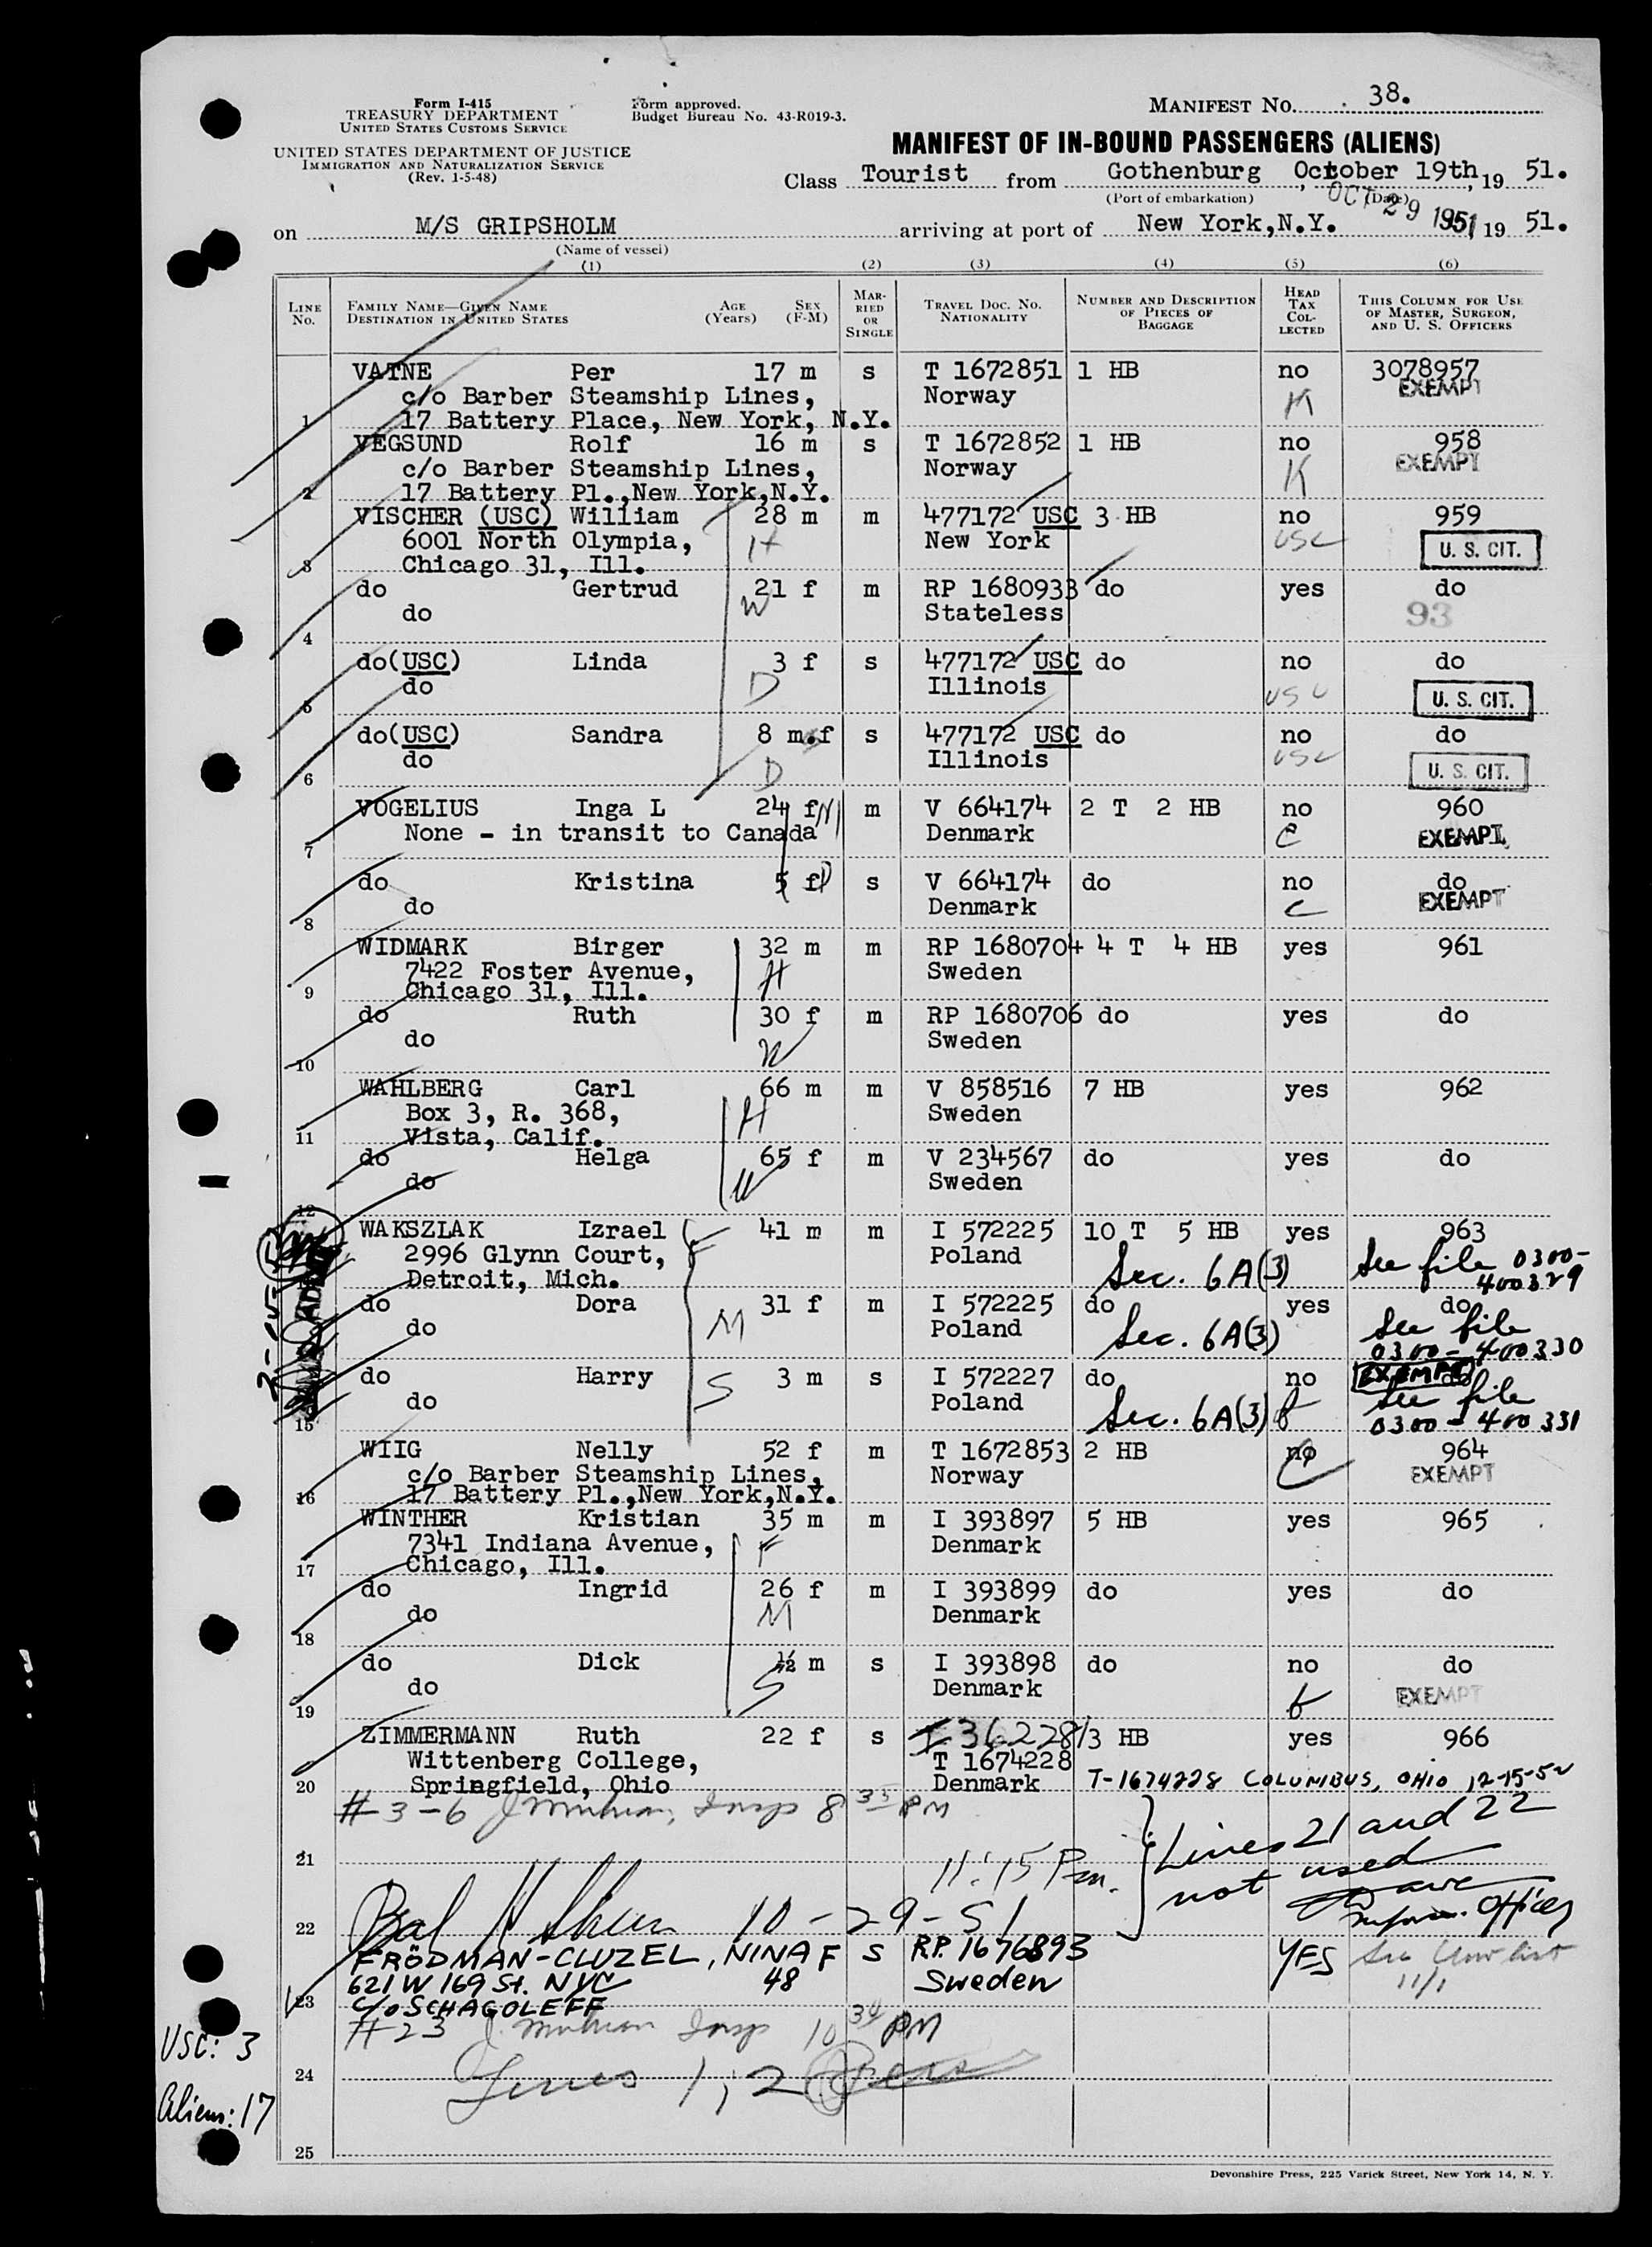 Form I-415
TREASURY DEPARTMENT
UNITED STATES CUSTOMS SERVICE
UNITED STATES DEPARTMENT OF JUSTICE
IMMIGRATION AND NATURALIZATION SERVICE
(Rev. 1-5-48)
Form approved.
Budget Bureau No. 43-R019-3.
MANIFEST NO. 38.
MANIFEST OF IN-BOUND PASSENGERS (ALIENS)
Class Tourist from Gothenburg, October 19th, 19 51.
(Port of embarkation) (Date)
OCT 29 1951
on M/S GRIPSHOLM arriving at port of New York, N.Y. 19 51.
(Name of vessel)
(1) (2) (3) (4) (5) (6)
LINE NO. FAMILY NAME—GIVEN NAME DESTINATION IN UNITED STATES AGE (Years) SEX (F-M) MARRIED OR SINGLE TRAVEL DOC. NO. NATIONALITY NUMBER AND DESCRIPTION OF PIECES OF BAGGAGE HEAD TAX COLLECTED THIS COLUMN FOR USE OF MASTER, SURGEON, AND U. S. OFFICERS
VATNE Per 17 m s T 1672851 1 HB no 3078957
c/o Barber Steamship Lines, Norway K EXEMPT
1 17 Battery Place, New York, N.Y.
VEGSUND Rolf 16 m s T 1672852 1 HB no 958
c/o Barber Steamship Lines, Norway K EXEMPT
2 17 Battery Pl.,New York,N.Y.
VISCHER (USC) William 28 m m 477172 USC 3 HB no 959
6001 North Olympia, H New York USC U. S. CIT.
3 Chicago 31, Ill.
do Gertrud 21 f m RP 1680933 do yes do
do W Stateless 93
4
do(USC) Linda 3 f s 477172 USC do no do
do D Illinois USC U. S. CIT.
5
do(USC) Sandra 8 m.f s 477172 USC do no do
do D Illinois USC U. S. CIT.
6
VOGELIUS Inga L 24 f M m V 664174 2 T 2 HB no 960
None - in transit to Canada Denmark C EXEMPT
7
do Kristina 5 f D s V 664174 do no do
do Denmark C EXEMPT
8
WIDMARK Birger 32 m m RP 1680704 4 T 4 HB yes 961
7422 Foster Avenue, H Sweden
9 Chicago 31, Ill.
do Ruth 30 f m RP 1680706 do yes do
do W Sweden
10
WAHLBERG Carl 66 m m V 858516 7 HB yes 962
Box 3, R. 368, H Sweden
11 Vista, Calif.
do Helga 65 f m V 234567 do yes do
do W Sweden
12
WAKSZLAK Izrael F 41 m m I 572225 10 T 5 HB yes 963
2996 Glynn Court, Poland Sec. 6A(3) See file 0300-
Detroit, Mich. 400329
do Dora 31 f m I 572225 do yes do
do M Poland Sec. 6A(3) See file
0300-400330
do Harry S 3 m s I 572227 do no do EXEMPT
do Poland Sec. 6A(3) See file
15 0300-400331
WIIG Nelly 52 f m T 1672853 2 HB no 964
c/o Barber Steamship Lines, Norway C EXEMPT
16 17 Battery Pl.,New York,N.Y.
WINTHER Kristian 35 m m I 393897 5 HB yes 965
7341 Indiana Avenue, F Denmark
17 Chicago, Ill.
do Ingrid 26 f m I 393899 do yes do
do M Denmark
18
do Dick ½ m s I 393898 do no do
do S Denmark EXEMPT
19
ZIMMERMANN Ruth 22 f s 3 HB yes 966
Wittenberg College, T 1674228
20 Springfield, Ohio Denmark T-1674228 COLUMBUS, OHIO 12-15-52
#3-6 Insp 8 35 PM
21 11:15 Pm. Lines 21 and 22
not used
22 10-29-51 Officer
FRÖDMAN-CLUZEL, NINA F S R.P. 1676893 YES
621 W 169 St. NYC 48 Sweden 11/1
23 C/O SCHAGOLEFF
#23 Insp 10 30 PM
24 Lines 1, 2
25
USC: 3
Aliens: 17
Devonshire Press, 225 Varick Street, New York 14, N. Y.